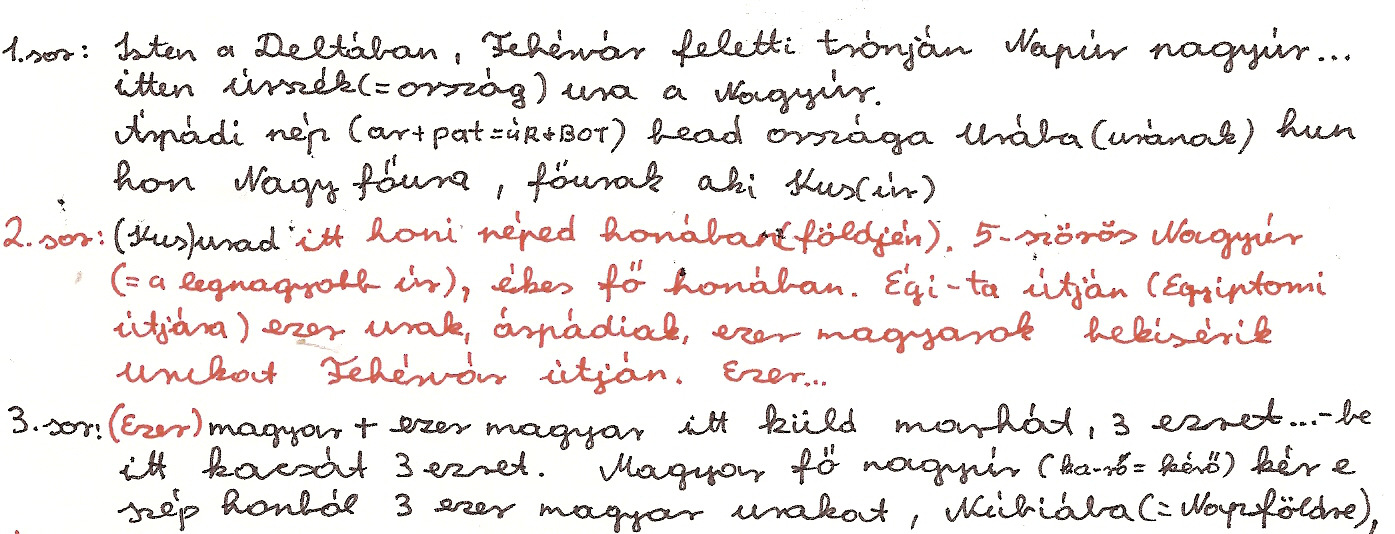 1.sor: Isten a Deltában, Fehérvár feletti trónján Napúr nagyúr...
itten úrszék(=ország) ura a Nagyúr.
Árpádi nép (ar+pat=úR+BOT) bead országa Urába(urának) hun
hon Nagy főura, főurak aki Kus(úr)
2. sor: (Kus)urad itt honi néped honában(földjén). 5-szörös Nagyúr
(=a legnagyobb úr), ékes fő honában. Égi-ta útján (Egyiptomi
útjára) ezer urak, árpádiak, ezer magyarok bekísérik
urukat Fehérvár útján. Ezer...
3. sor: (Ezer)magyar + ezer magyar itt küld marhát, 3 ezret...-be
itt kacsát 3 ezret. Magyar fő nagyúr (ka-rő=kérő) kér e
szép honból 3 ezer magyar urakat, Núbiába(=Napföldre),